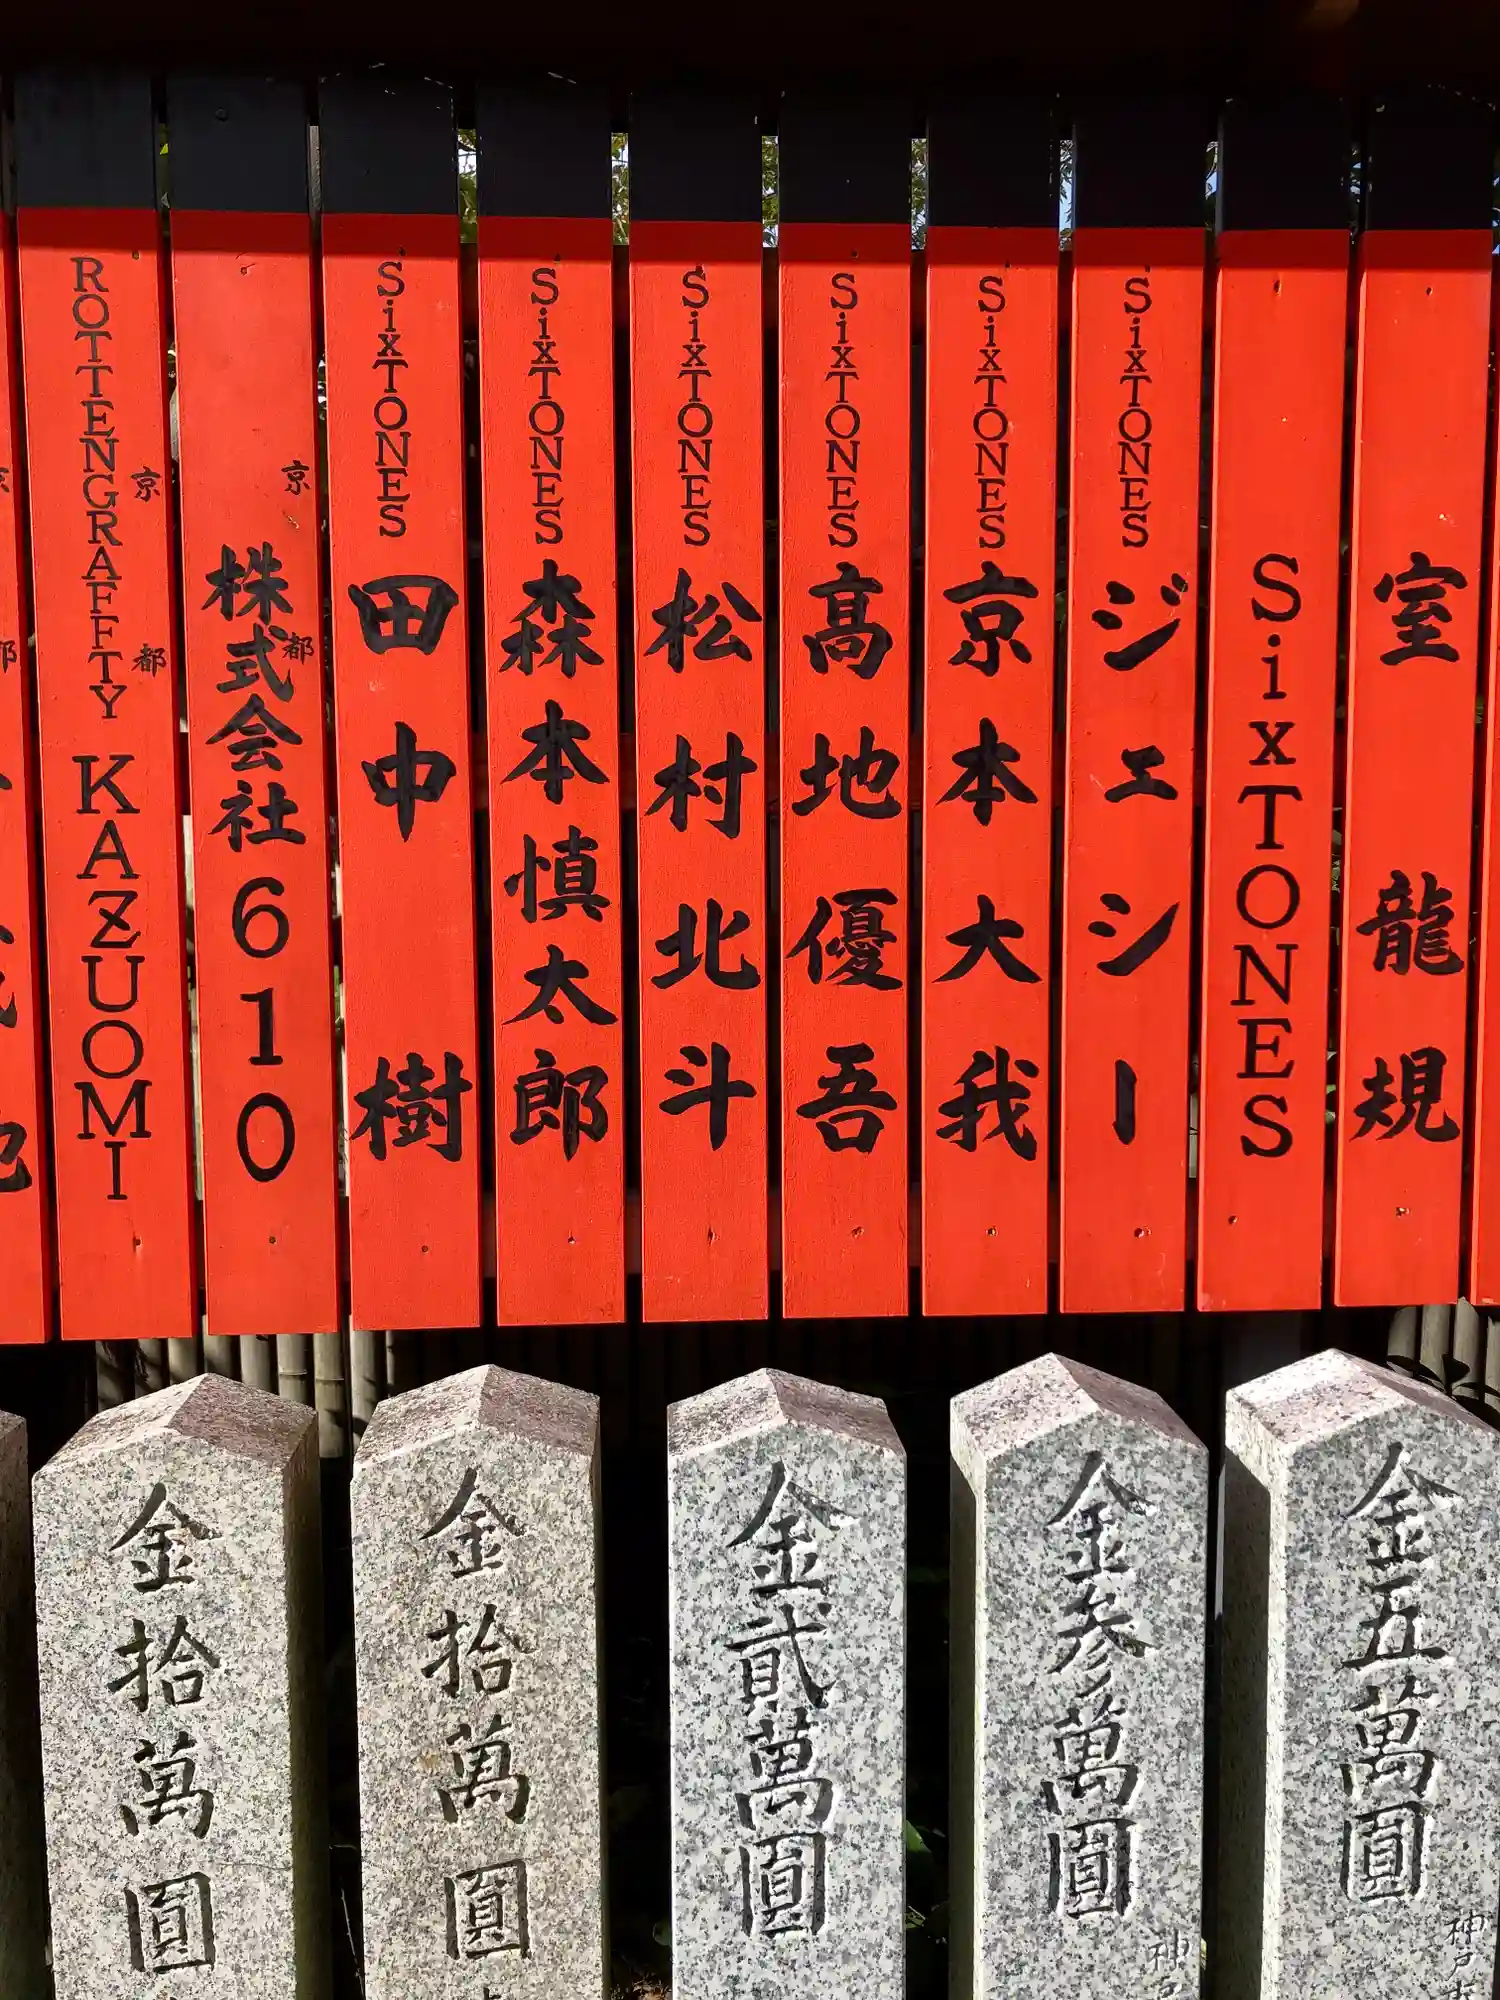 室龍規
SixTONES
SixTONES ジェシー
SixTONES 京本大我
SixTONES 髙地優吾
SixTONES 松村北斗
SixTONES 森本慎太郎
SixTONES 田中樹
京都
株式会社610
京都
ROTTENGRAFFTY KAZUOMI
金五萬圓
神戸
金参萬圓
神戸
金貳萬圓
金拾萬圓
金拾萬圓